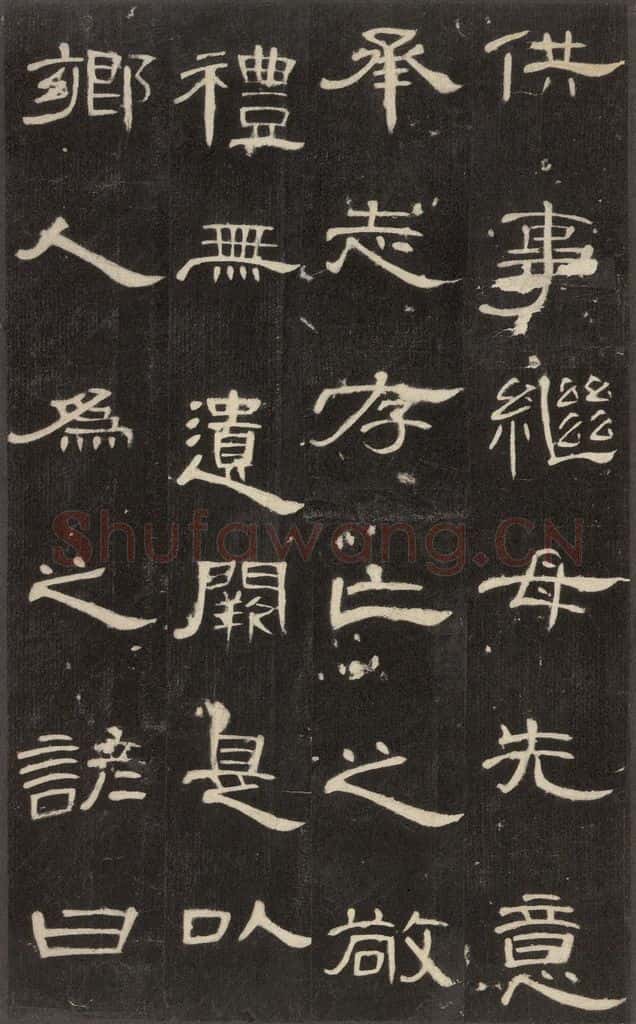 供事繼母先意
承志存亡之敬
禮無遺闕是以
鄉人為之諺曰
Shufawang.CN